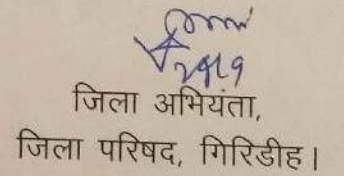 जिला अभियंता,
जिला परिषद, गिरिडीह।